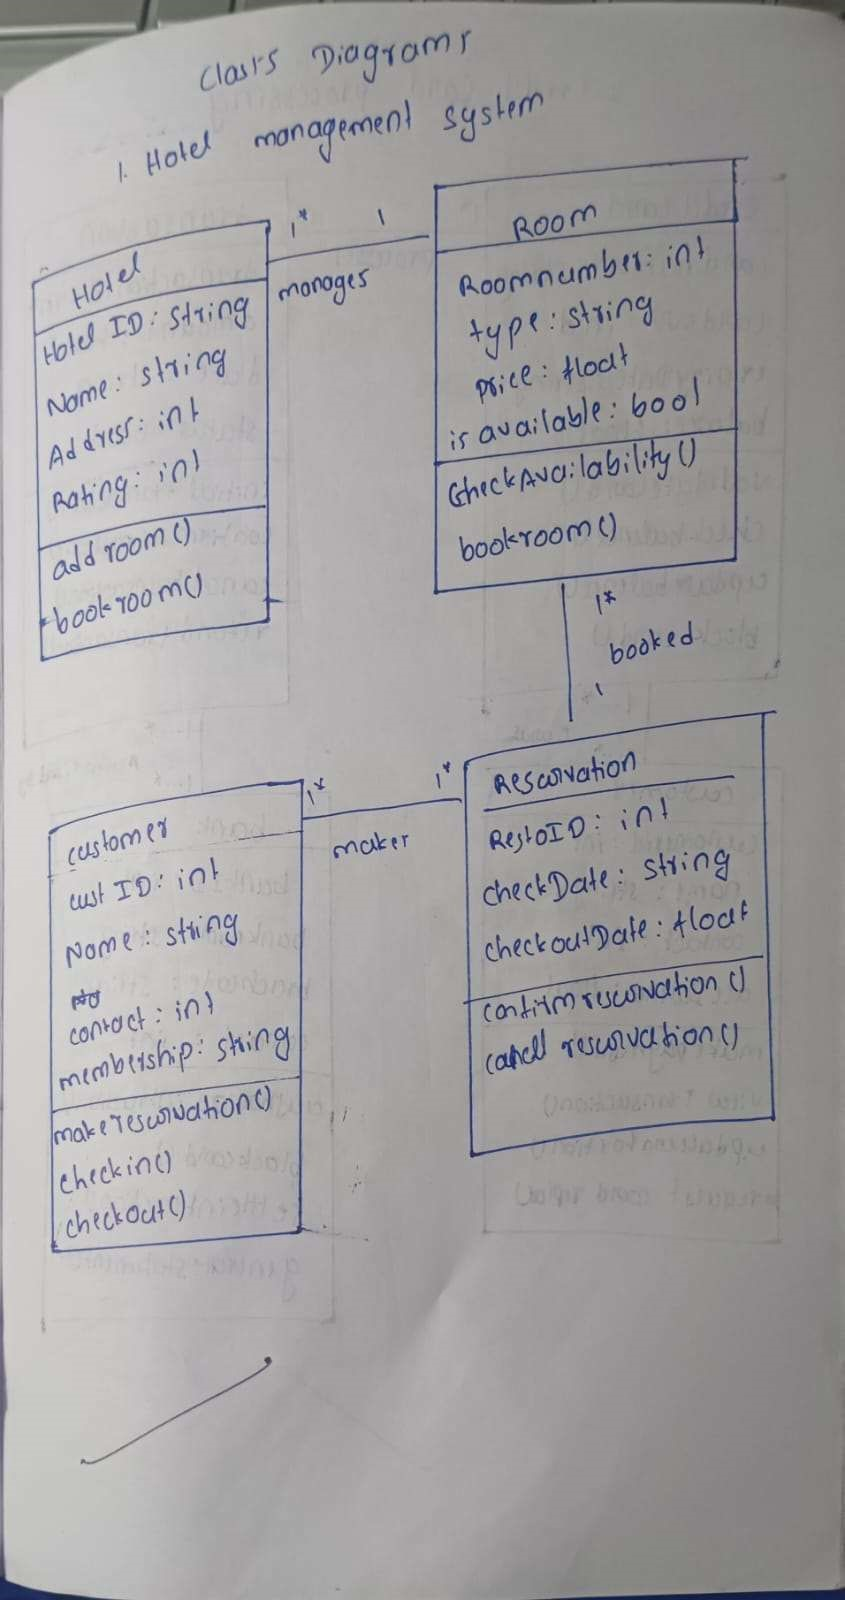 Class Diagrams
1. Hotel management system
Hotel
Hotel ID: string
Name: string
Address: int
Rating: int
add room()
bookroom()
1* 1
manages
Room
Roomnumber: int
type: string
price: float
is available: bool
CheckAvailability()
bookroom()
1*
booked
1
customer
cust ID: int
Name: string
contact: int
membership: string
makereservation()
checkin()
checkout()
1* 1*
maker
Reservation
RestoID: int
checkDate: string
checkoutDate: float
confirm reservation()
cancel reservation()